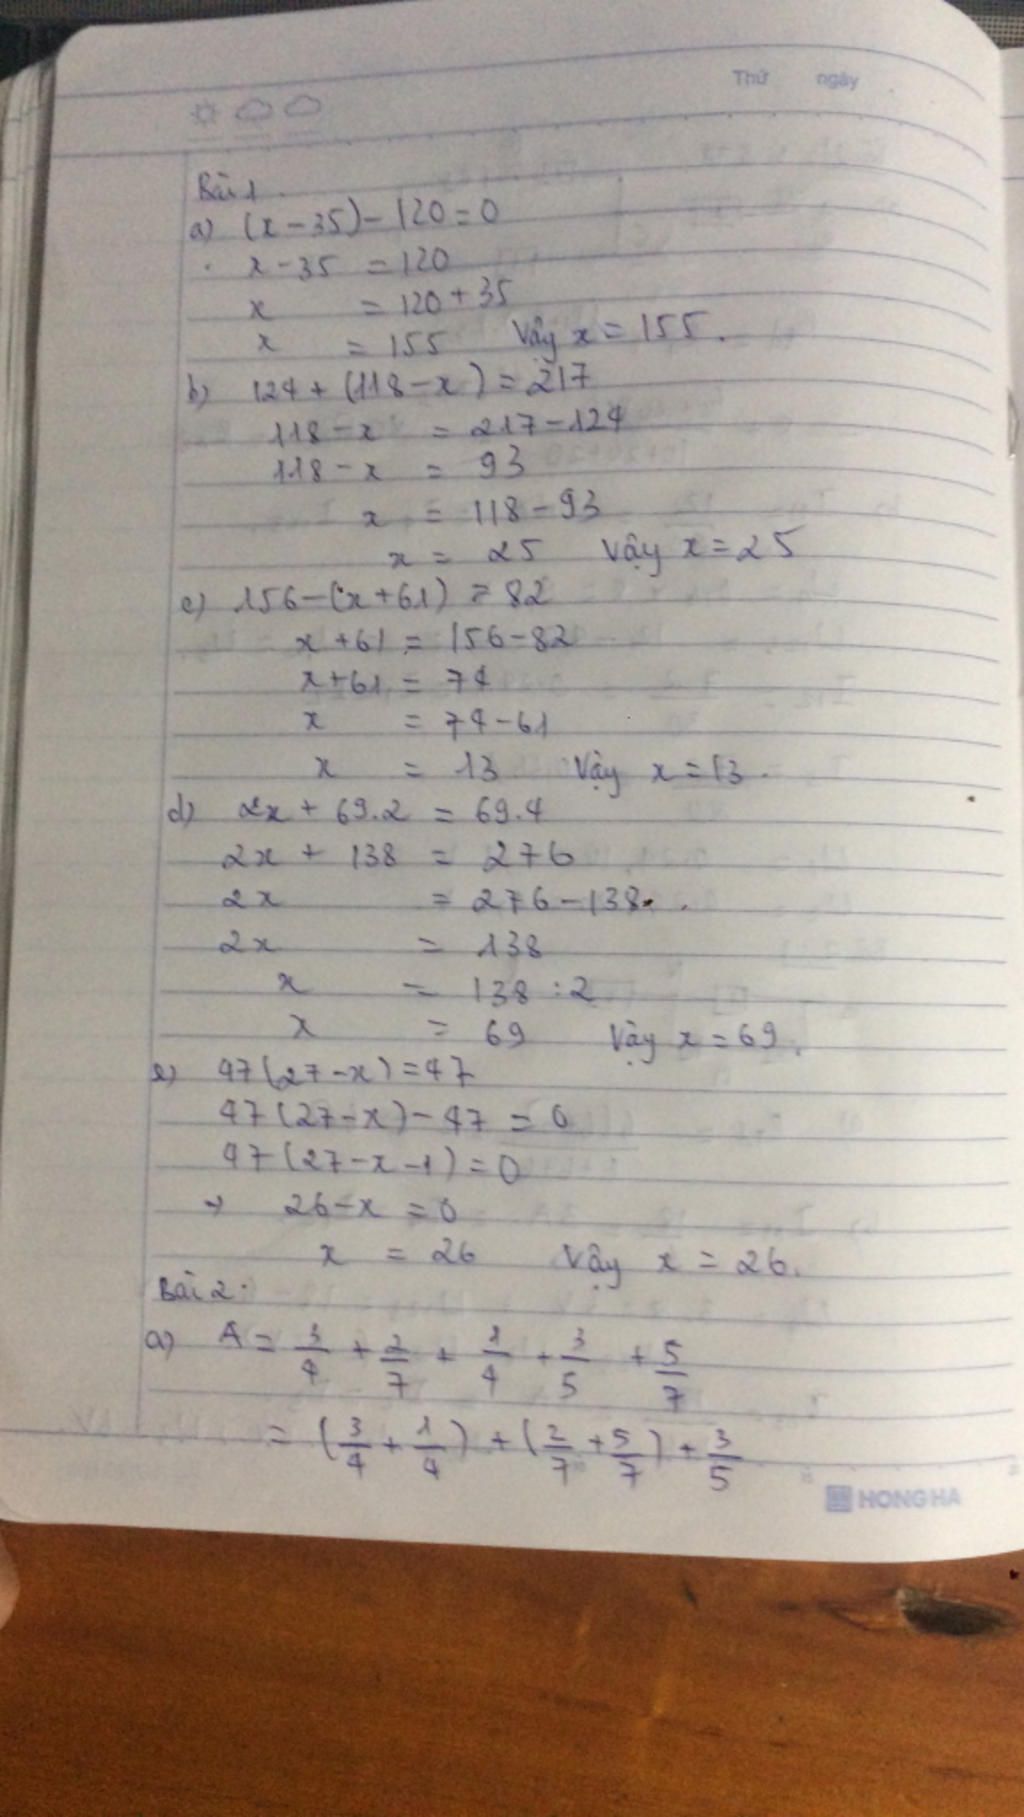 Thứ ngày
Bài 1.
a) (x - 35) - 120 = 0
x - 35 = 120
x = 120 + 35
x = 155 Vậy x = 155.
b) 124 + (118 - x) = 217
118 - x = 217 - 124
118 - x = 93
x = 118 - 93
x = 25 Vậy x = 25
c) 156 - (x + 61) = 82
x + 61 = 156 - 82
x + 61 = 74
x = 74 - 61
x = 13 Vậy x = 13.
d) 2x + 69.2 = 69.4
2x + 138 = 276
2x = 276 - 138
2x = 138
x = 138 : 2
x = 69 Vậy x = 69.
e) 47(27 - x) = 47
47(27 - x) - 47 = 0
47(27 - x - 1) = 0
→ 26 - x = 0
x = 26 Vậy x = 26.
Bài 2.
a) A = 3/4 + 2/7 + 1/4 + 3/5 + 5/7
= (3/4 + 1/4) + (2/7 + 5/7) + 3/5
HONG HA